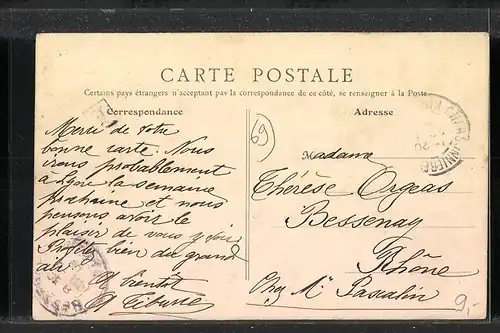 CARTE POSTALE
Certains pays étrangers n'acceptant pas la correspondance de ce côté, se renseigner à la Poste
Correspondance
Adresse
Merci de votre
bonne carte. Nous
irons probablement
à Lyon la semaine
prochaine et nous
pensons avoir le
plaisir de vous y voir
Profitez bien du grand
air
A bientôt
69
Madame
Thérèse Orgeas
Bessenay
Rhône
Chez Mr Pascalin
9,-